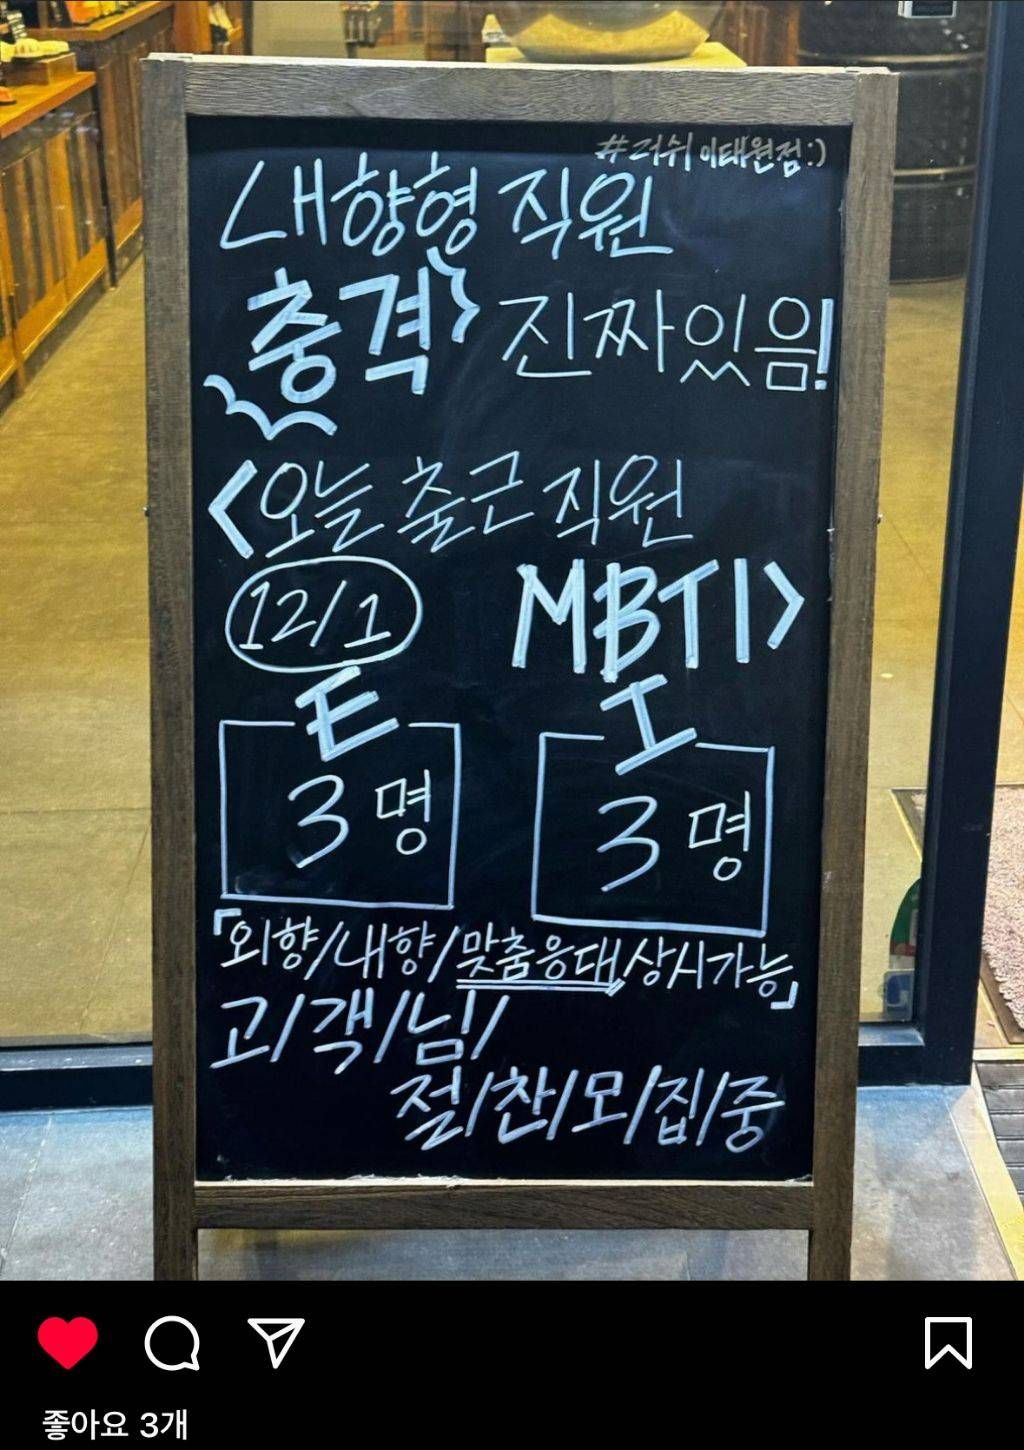 #러쉬 이태원점:)
내향형 직원
충격 진짜있음!
<오늘 출근 직원
12/1 MBTI>
E I
3명 3명
「외향/내향/맞춤응대/상시가능」
고/객/님/
절/찬/모/집/중
좋아요 3개